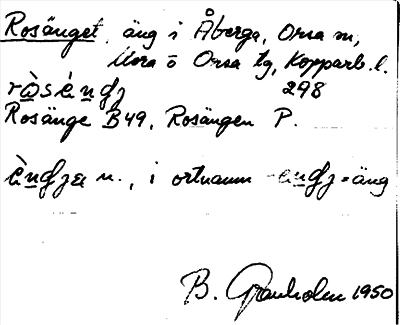 Rosänget, äng i Åberga, Orsa sn,
Mora o Orsa tg, Kopparb. l.
298
Rosänge B49, Rosängen P.
n., i ortnamn = äng
B. Granholm 1950